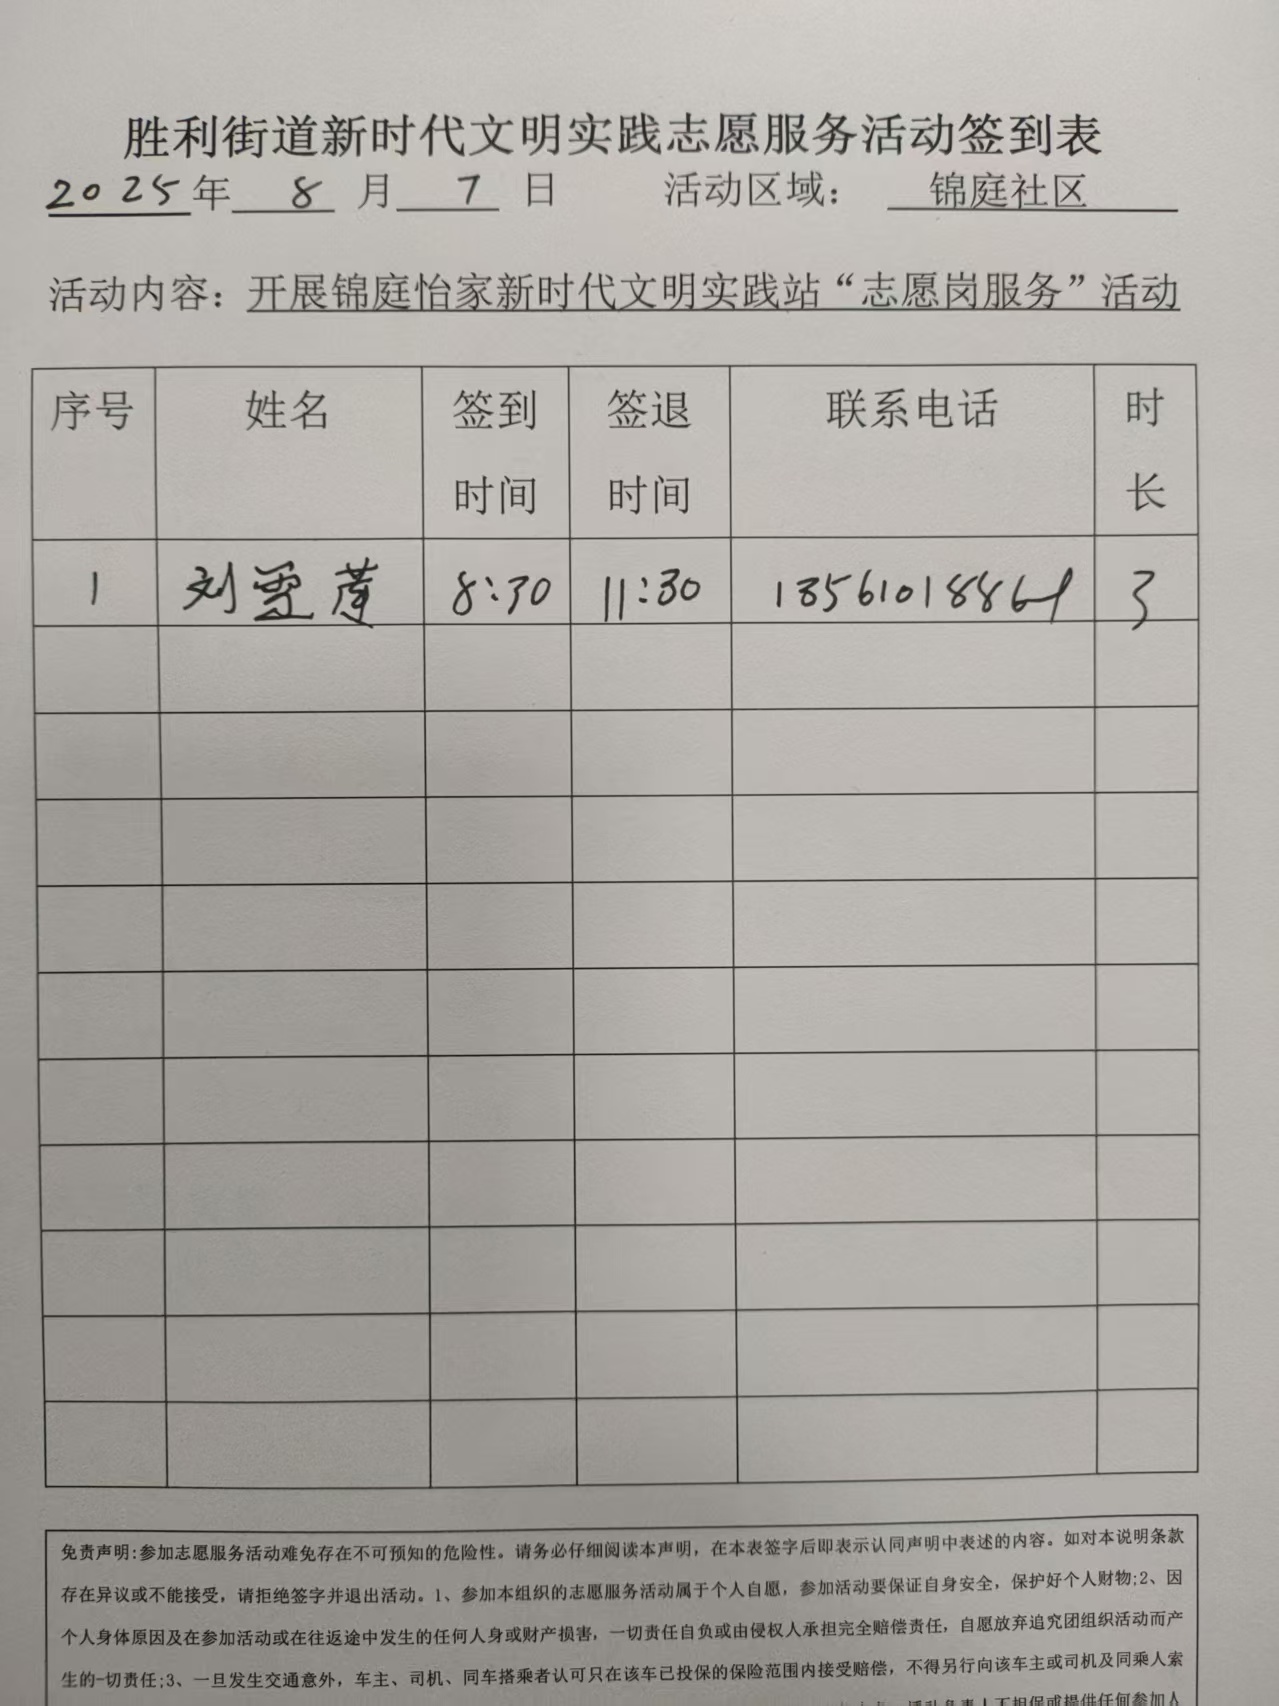 胜利街道新时代文明实践志愿服务活动签到表
2025年 8 月 7 日 活动区域： 锦庭社区
活动内容：开展锦庭怡家新时代文明实践站“志愿岗服务”活动
序号 姓名 签到时间 签退时间 联系电话 时长
1 刘雪莲 8:30 11:30 3
免责声明:参加志愿服务活动难免存在不可预知的危险性。请务必仔细阅读本声明，在本表签字后即表示认同声明中表述的内容。如对本说明条款
存在异议或不能接受，请拒绝签字并退出活动。1、参加本组织的志愿服务活动属于个人自愿，参加活动要保证自身安全，保护好个人财物;2、因
个人身体原因及在参加活动或在往返途中发生的任何人身或财产损害，一切责任自负或由侵权人承担完全赔偿责任，自愿放弃追究团组织活动而产
生的一切责任;3、一旦发生交通意外，车主、司机、同车搭乘者认可只在该车已投保的保险范围内接受赔偿，不得另行向该车主或司机及同乘人索
活动负责人不担保或提供任何参加人